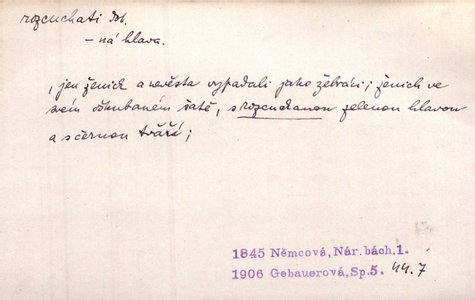 rozcuchati dok.
– ná hlava.
, jen ženich a nevěsta vypadali jako žebráci; ženich ve
svém ošubaném šatě, s rozcuchanou zelenou hlavou
a s černou tváří;
1845 Němcová, Nár. bách. 1.
1906 Gebauerová, Sp. 5. 44.7